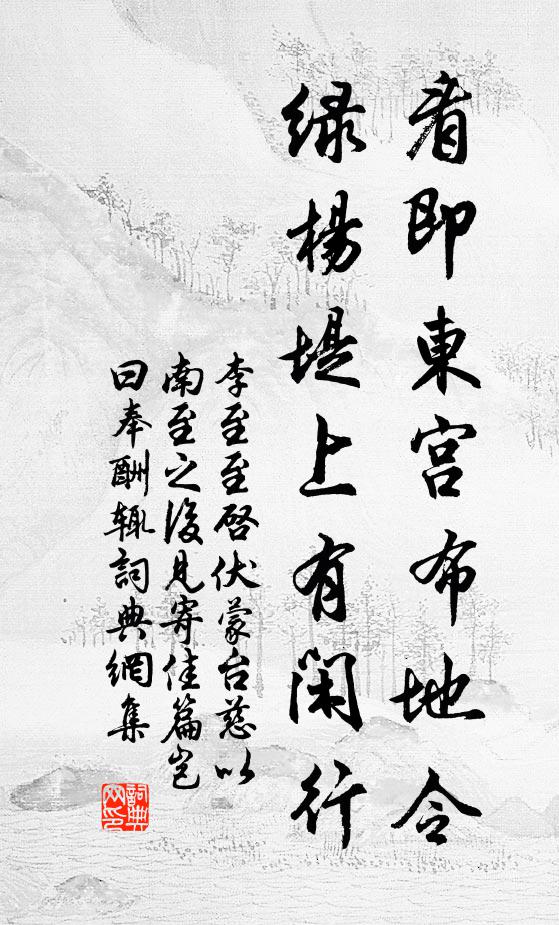 看即東宮布地令
綠楊堤上有閑行
李至至啓伏蒙台慈以
南至之後見寄佳篇豈
曰奉酬輒詞典網集
詞典网印